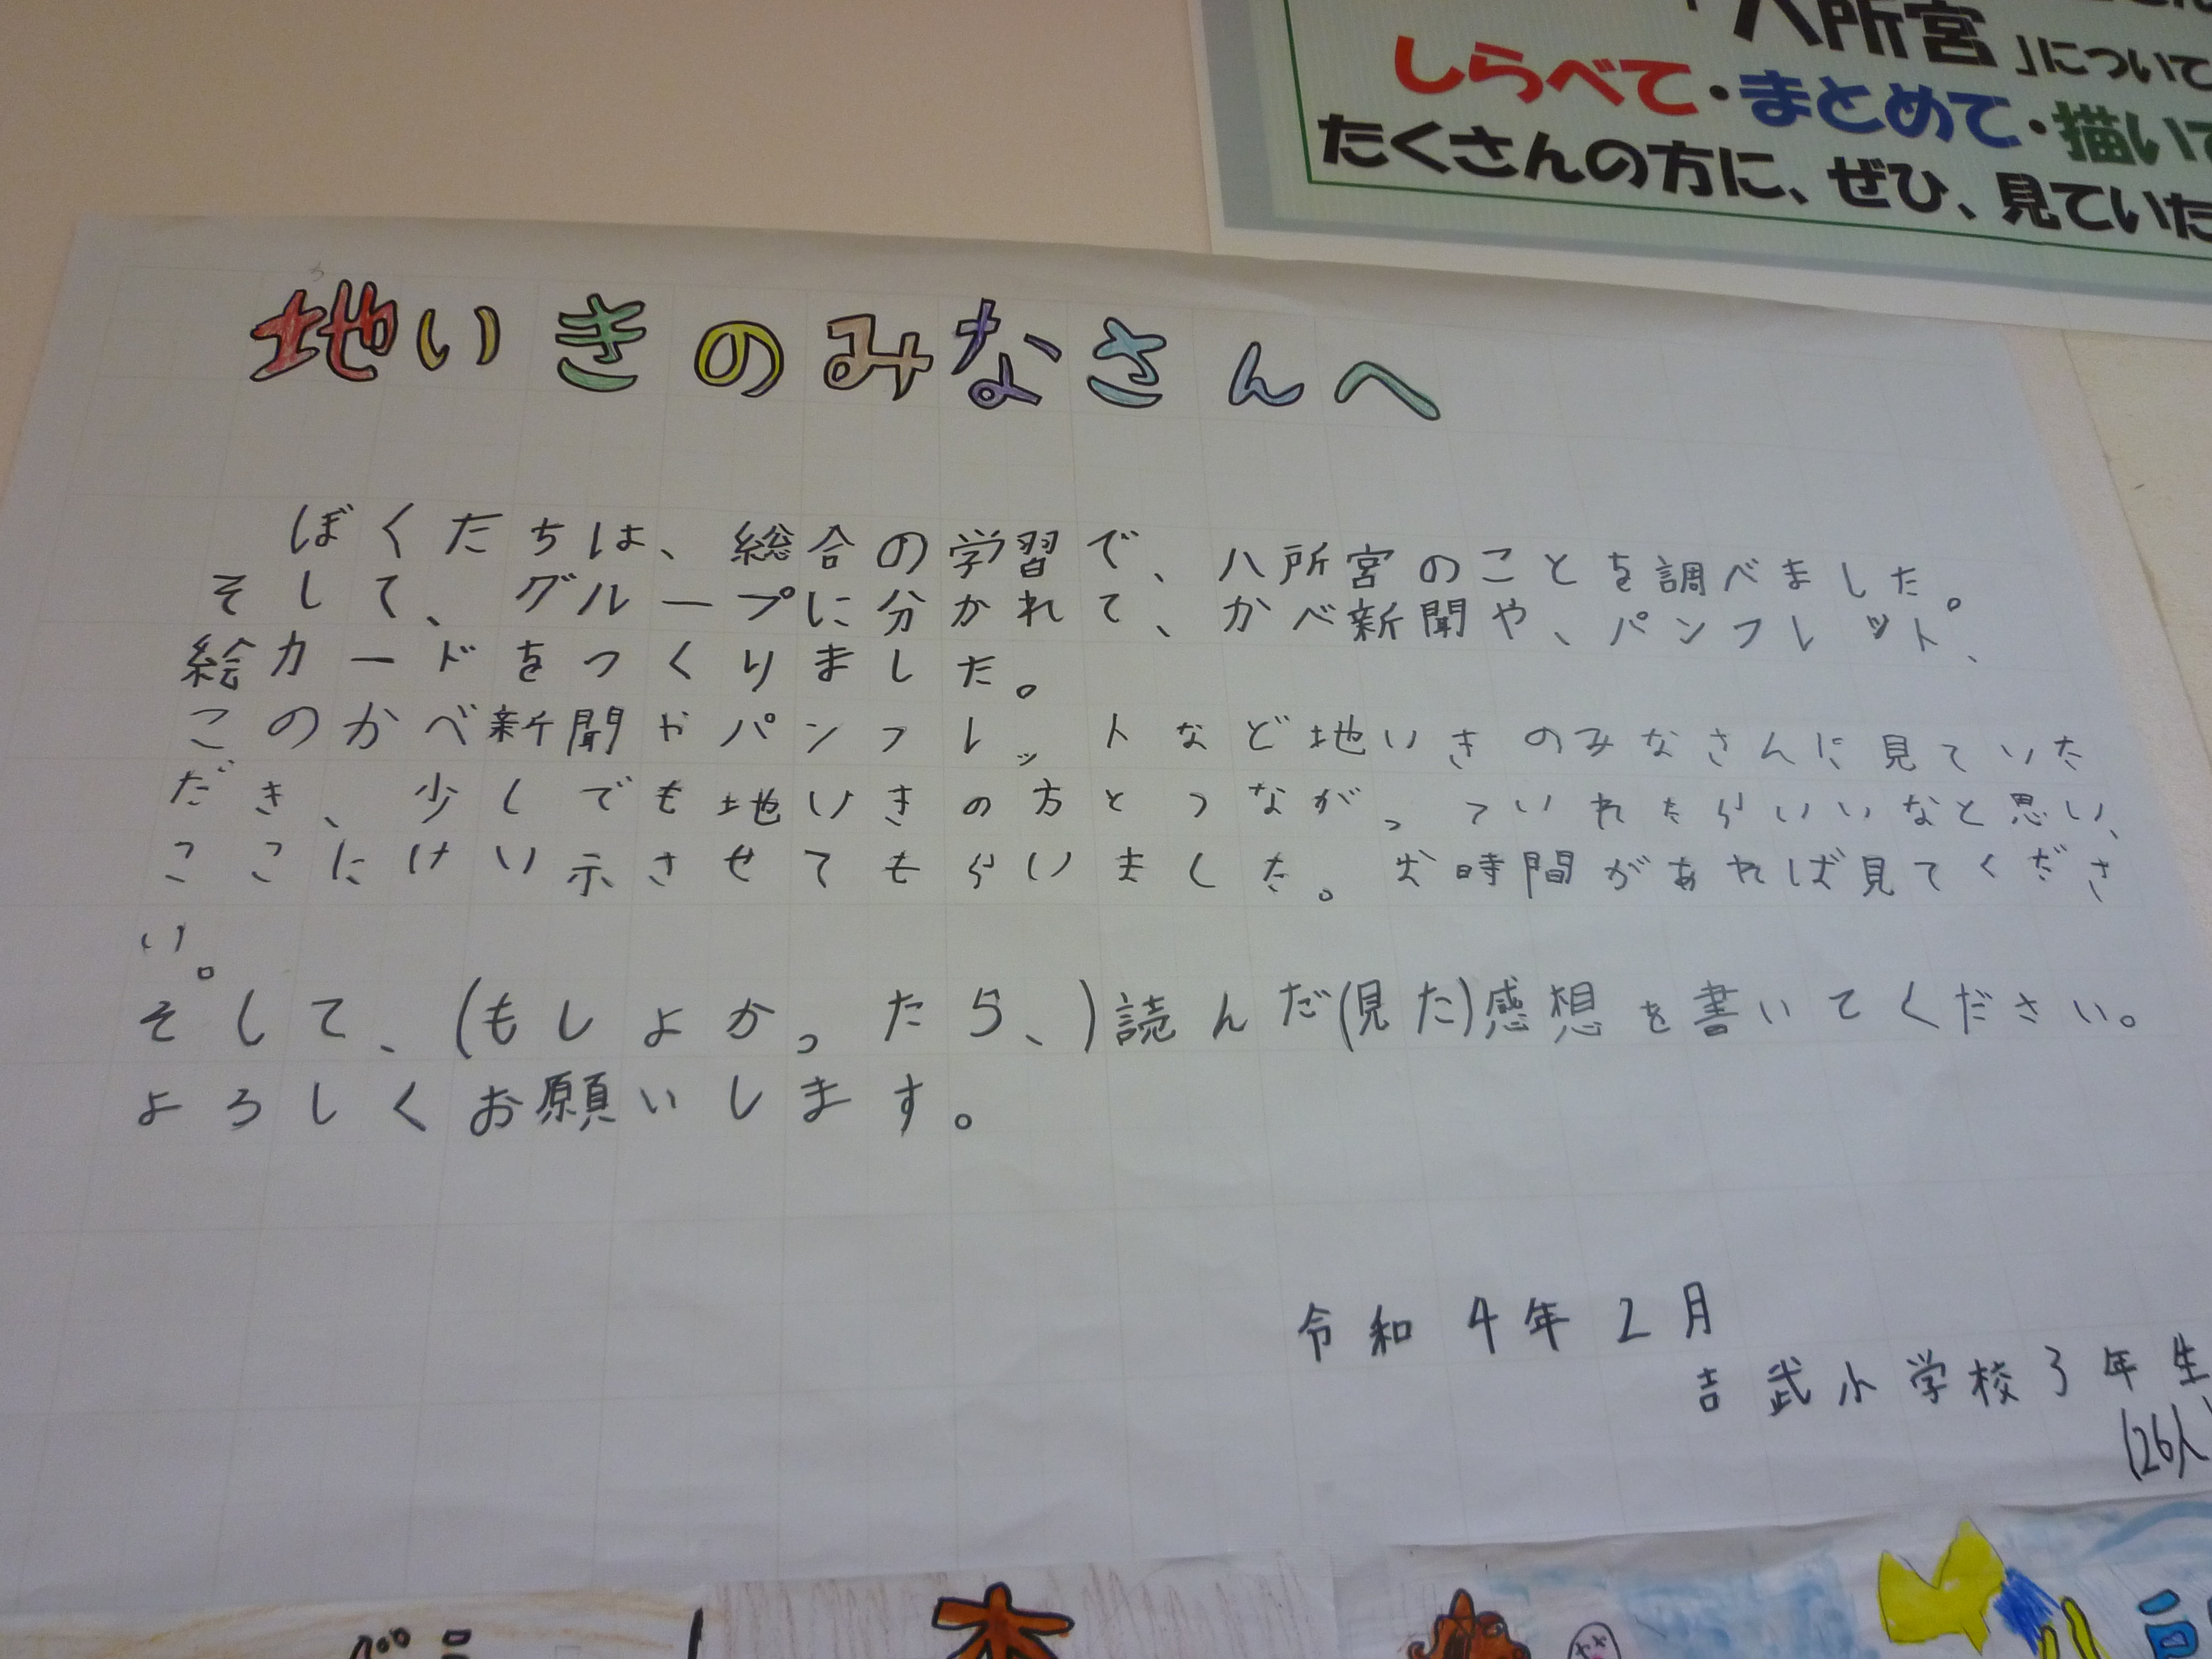 「八所宮」について
しらべて・まとめて・描いて
たくさんの方に、ぜひ、見ていた
地いきのみなさんへ
ぼくたちは、総合の学習で、八所宮のことを調べました。
そして、グループに分かれて、かべ新聞や、パンフレット、
絵カードをつくりました。
このかべ新聞やパンフレットなど地いきのみなさんに見ていた
だき、少しでも地いきの方とつながっていれたらいいなと思い、
ここにけい示させてもらいました。お時間があれば見てくださ
い。
そして、(もしよかったら、)読んだ(見た)感想を書いてください。
よろしくお願いします。
令和4年2月
吉武小学校3年生
(26人)